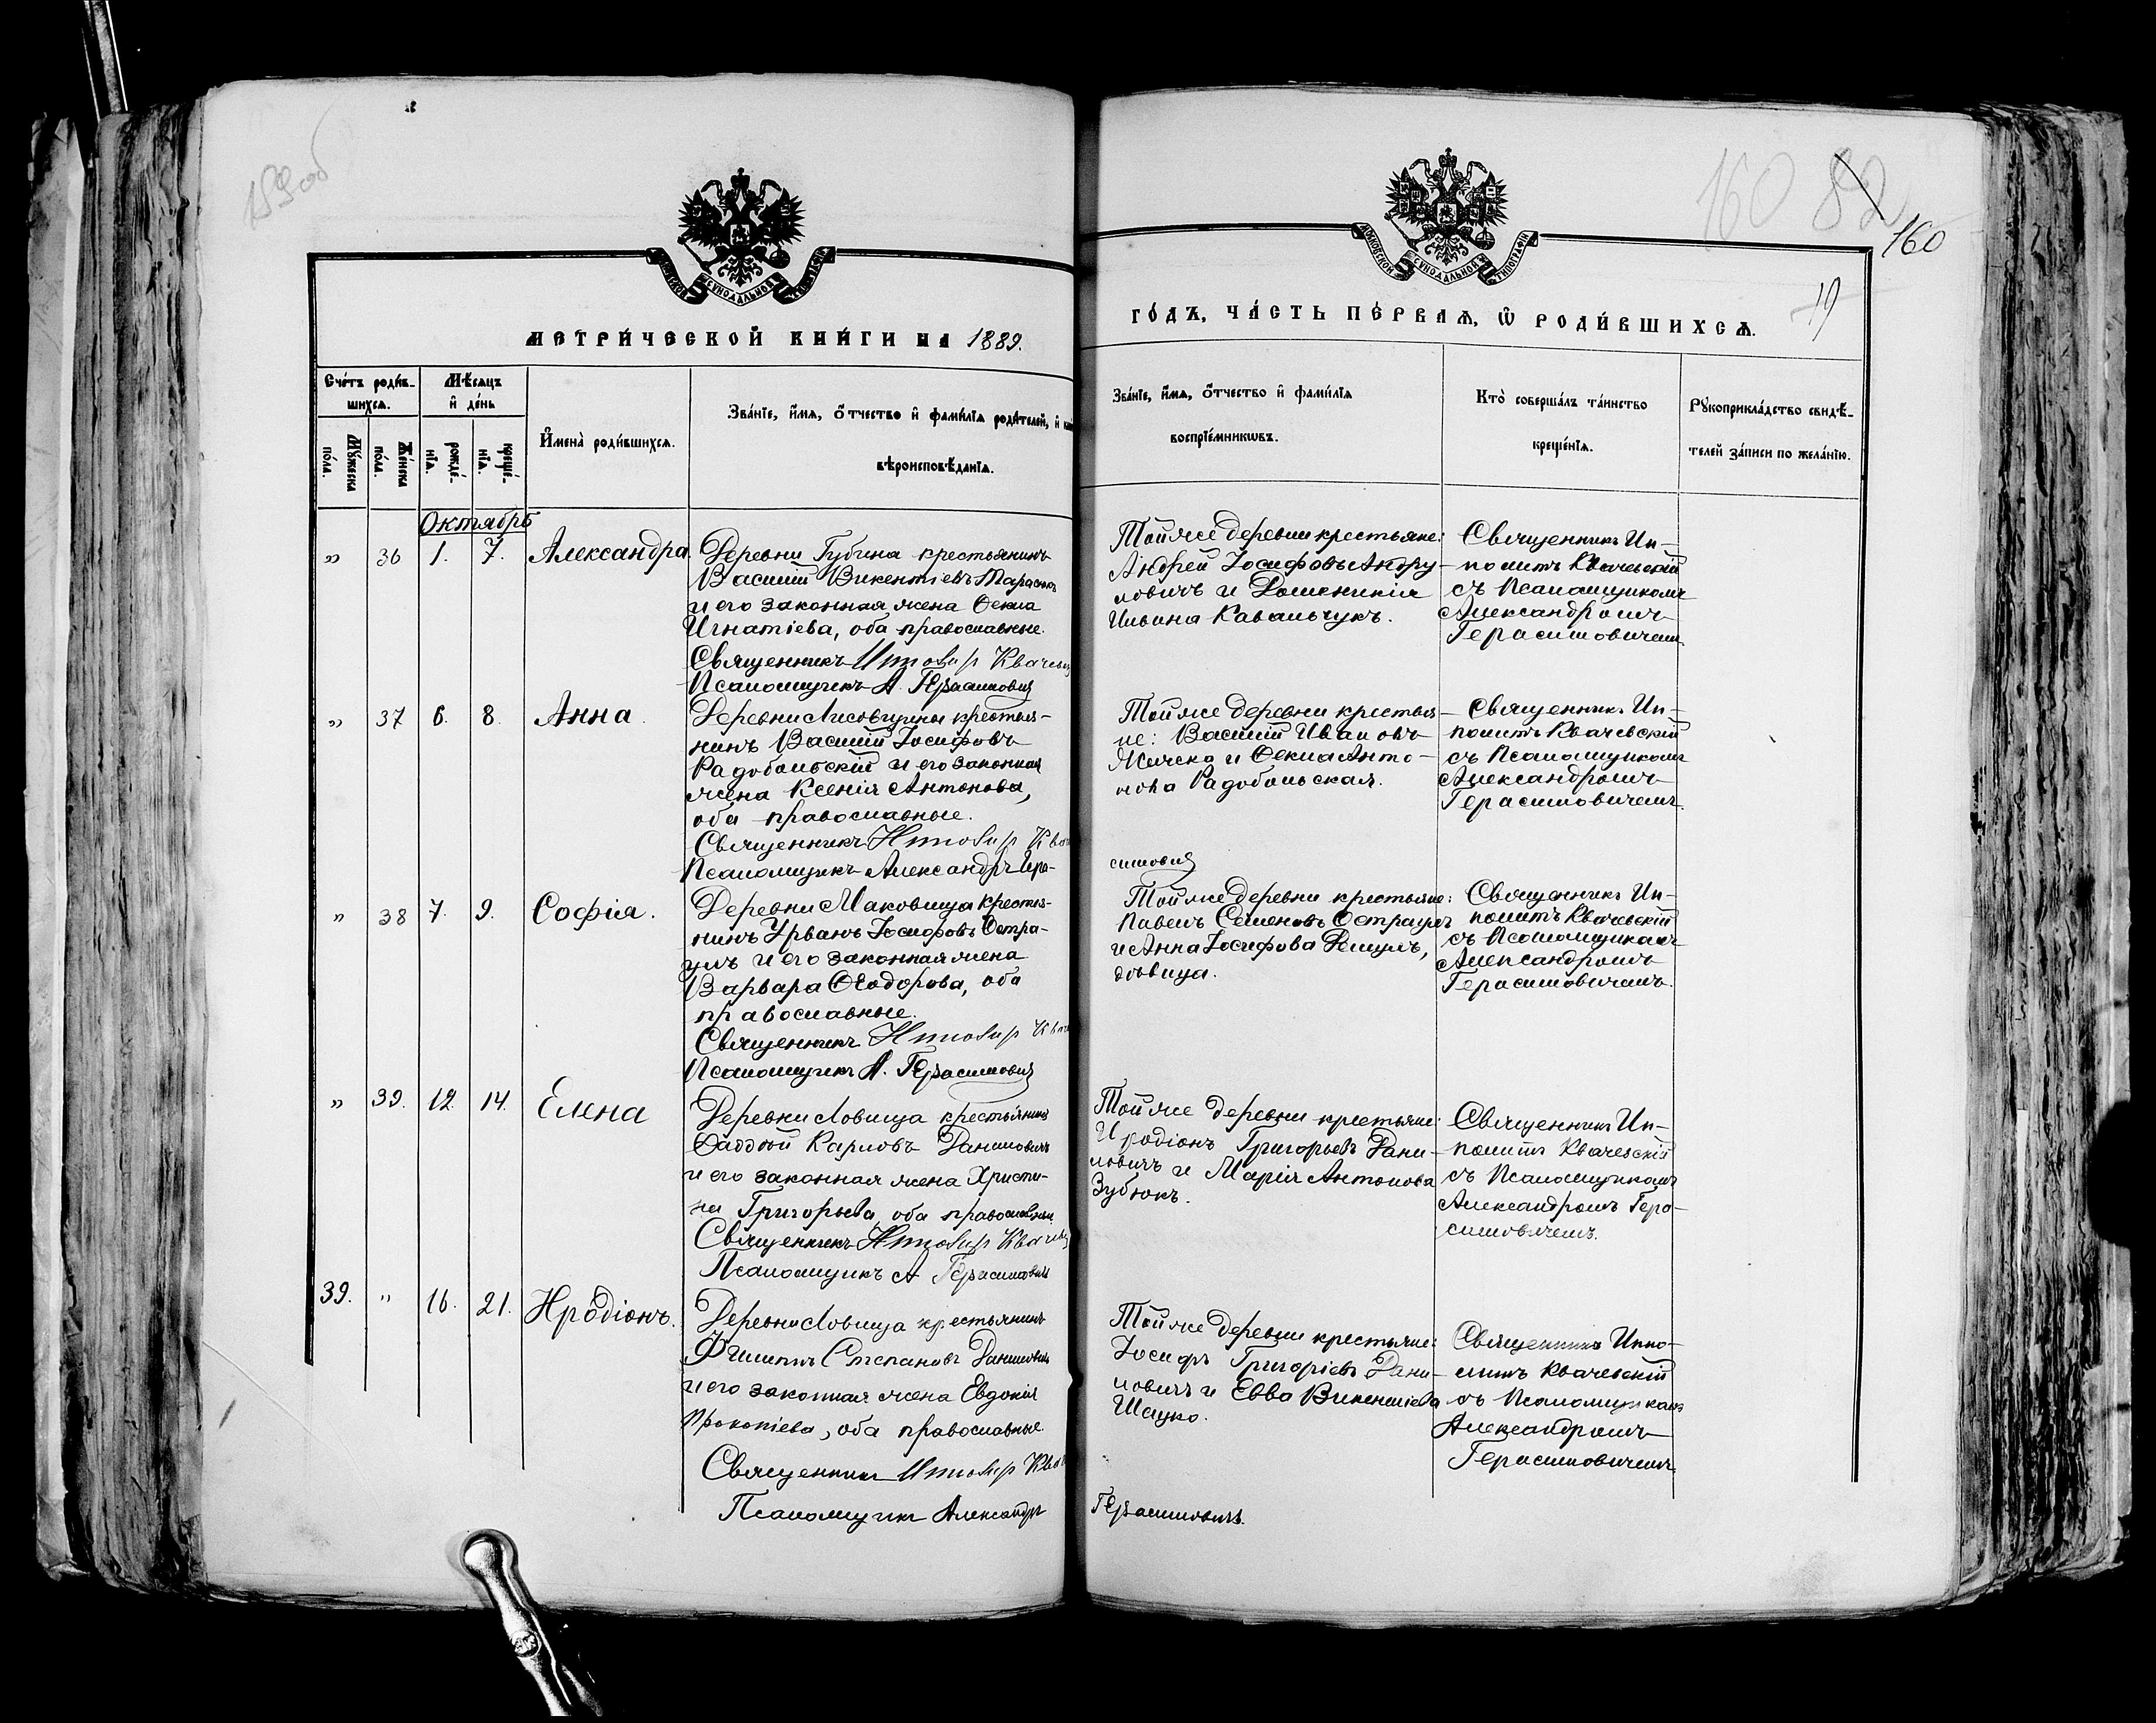 159об
160 82
160
19
МОСКОВСКОЙ СѴНОДАЛЬНОЙ ТИПОГРАФІИ
МОСКОВСКОЙ СѴНОДАЛЬНОЙ ТИПОГРАФІИ
МЕТРИ́ЧЕСКОЙ КНИ́ГИ НА 1889.
ГО́ДЪ, ЧА́СТЬ ПЕ́РВАЯ, Ѽ РОДИ́ВШИХСЯ.
Сче́тъ роди́в-
шихся.
Мѣ́сяцъ
и҆ де́нь
Му́жеска
по́ла.
Же́нска
по́ла.
рожде́-
нїѧ.
креще́-
нїѧ.
И҆мена̀ роди́вшихся.
Зва́нїе, и҆́мя, ѻ҆́тчество и҆ фами́лїя роди́телей, и҆
вѣроисповѣ́данїя.
Зва́нїе, и҆́мя, ѻ҆́тчество и҆ фами́лїя
воспрїе́мниковъ.
Кто̀ соверша́лъ та́инство
креще́нїя.
Рꙋкоприкла́дство свидѣ́-
телей за́писи по жела́нїю.
Октябрь
„ 36 1. 7. Александра
Деревни Губина крестьянинъ
Василій Викентіевъ Тарасюкъ
и его законная жена Ѳекла
Игнатіева, оба православные.
Священникъ Ипполитъ Квачевскій
Псаломщикъ А. Герасимовичъ
Той же деревни крестьяне:
Андрей Іосифовъ Андру-
ловичъ и Домникія
Ильина Кавальчукъ.
Священникъ Ип-
полит Квачевскій
съ Псаломщикомъ
Александромъ
Герасимовичемъ.
„ 37 6. 8. Анна.
Деревни Лисовщины крестья-
нинъ Василій Іосифовъ
Радобольскій и его законная
жена Ксенія Антонова,
оба православные.
Священникъ Ипполитъ Квач
Псаломщикъ Александръ Гера-
симовичъ
Той же деревни крестья-
не: Василій Ивановъ
и Ѳекла Анто-
нова Радобольская.
Священникъ Ип-
полит Квачевскій
съ Псаломщикомъ
Александромъ
Герасимовичемъ.
„ 38 7. 9. Софія.
Деревни Маковища крестья-
нинъ Урванъ Іосифовъ Остра-
умъ и его законная жена
Варвара Ѳеодорова, оба
православные.
Священникъ Ипполитъ Квач
Псаломщикъ А. Герасимовичъ
Той же деревни крестьяне:
Павелъ Семеновъ Остраумъ
и Анна Іосифова
дѣвица.
Священникъ Ип-
полит Квачевскій
съ Псаломщикомъ
Александромъ
Герасимовичемъ.
„ 39. 12. 14. Елена
Деревни Ловища крестьянинъ
Ѳаддей Карловъ Даниловичъ
и его законная жена Христи-
на Григорьева, оба православные
Священникъ Ипполитъ Квачевскій
Псаломщикъ А Герасимовичъ
Той же деревни крестьяне:
Иродіонъ Григорьевъ Дани-
ловичъ и Марія Антонова
Зубюкъ.
Священникъ Ип-
полит Квачевскій
съ Псаломщикомъ
Александромъ Гера-
симовичемъ.
39. „ 16. 21. Иродіонъ.
Деревни Ловища крестьянинъ
Филиппъ Степановъ Даниловичъ
и его законная жена Евдокія
Прокопіева, оба православные.
Священникъ Ипполитъ Квач
Псаломщикъ Александръ
Герасимовичъ.
Той же деревни крестьяне:
Іосифъ Григоріевъ Дани-
ловичъ и Евва Викентіева
Шацко.
Священникъ Иппо-
литъ Квачевскій
съ Псаломщикомъ
Александромъ
Герасимовичемъ.